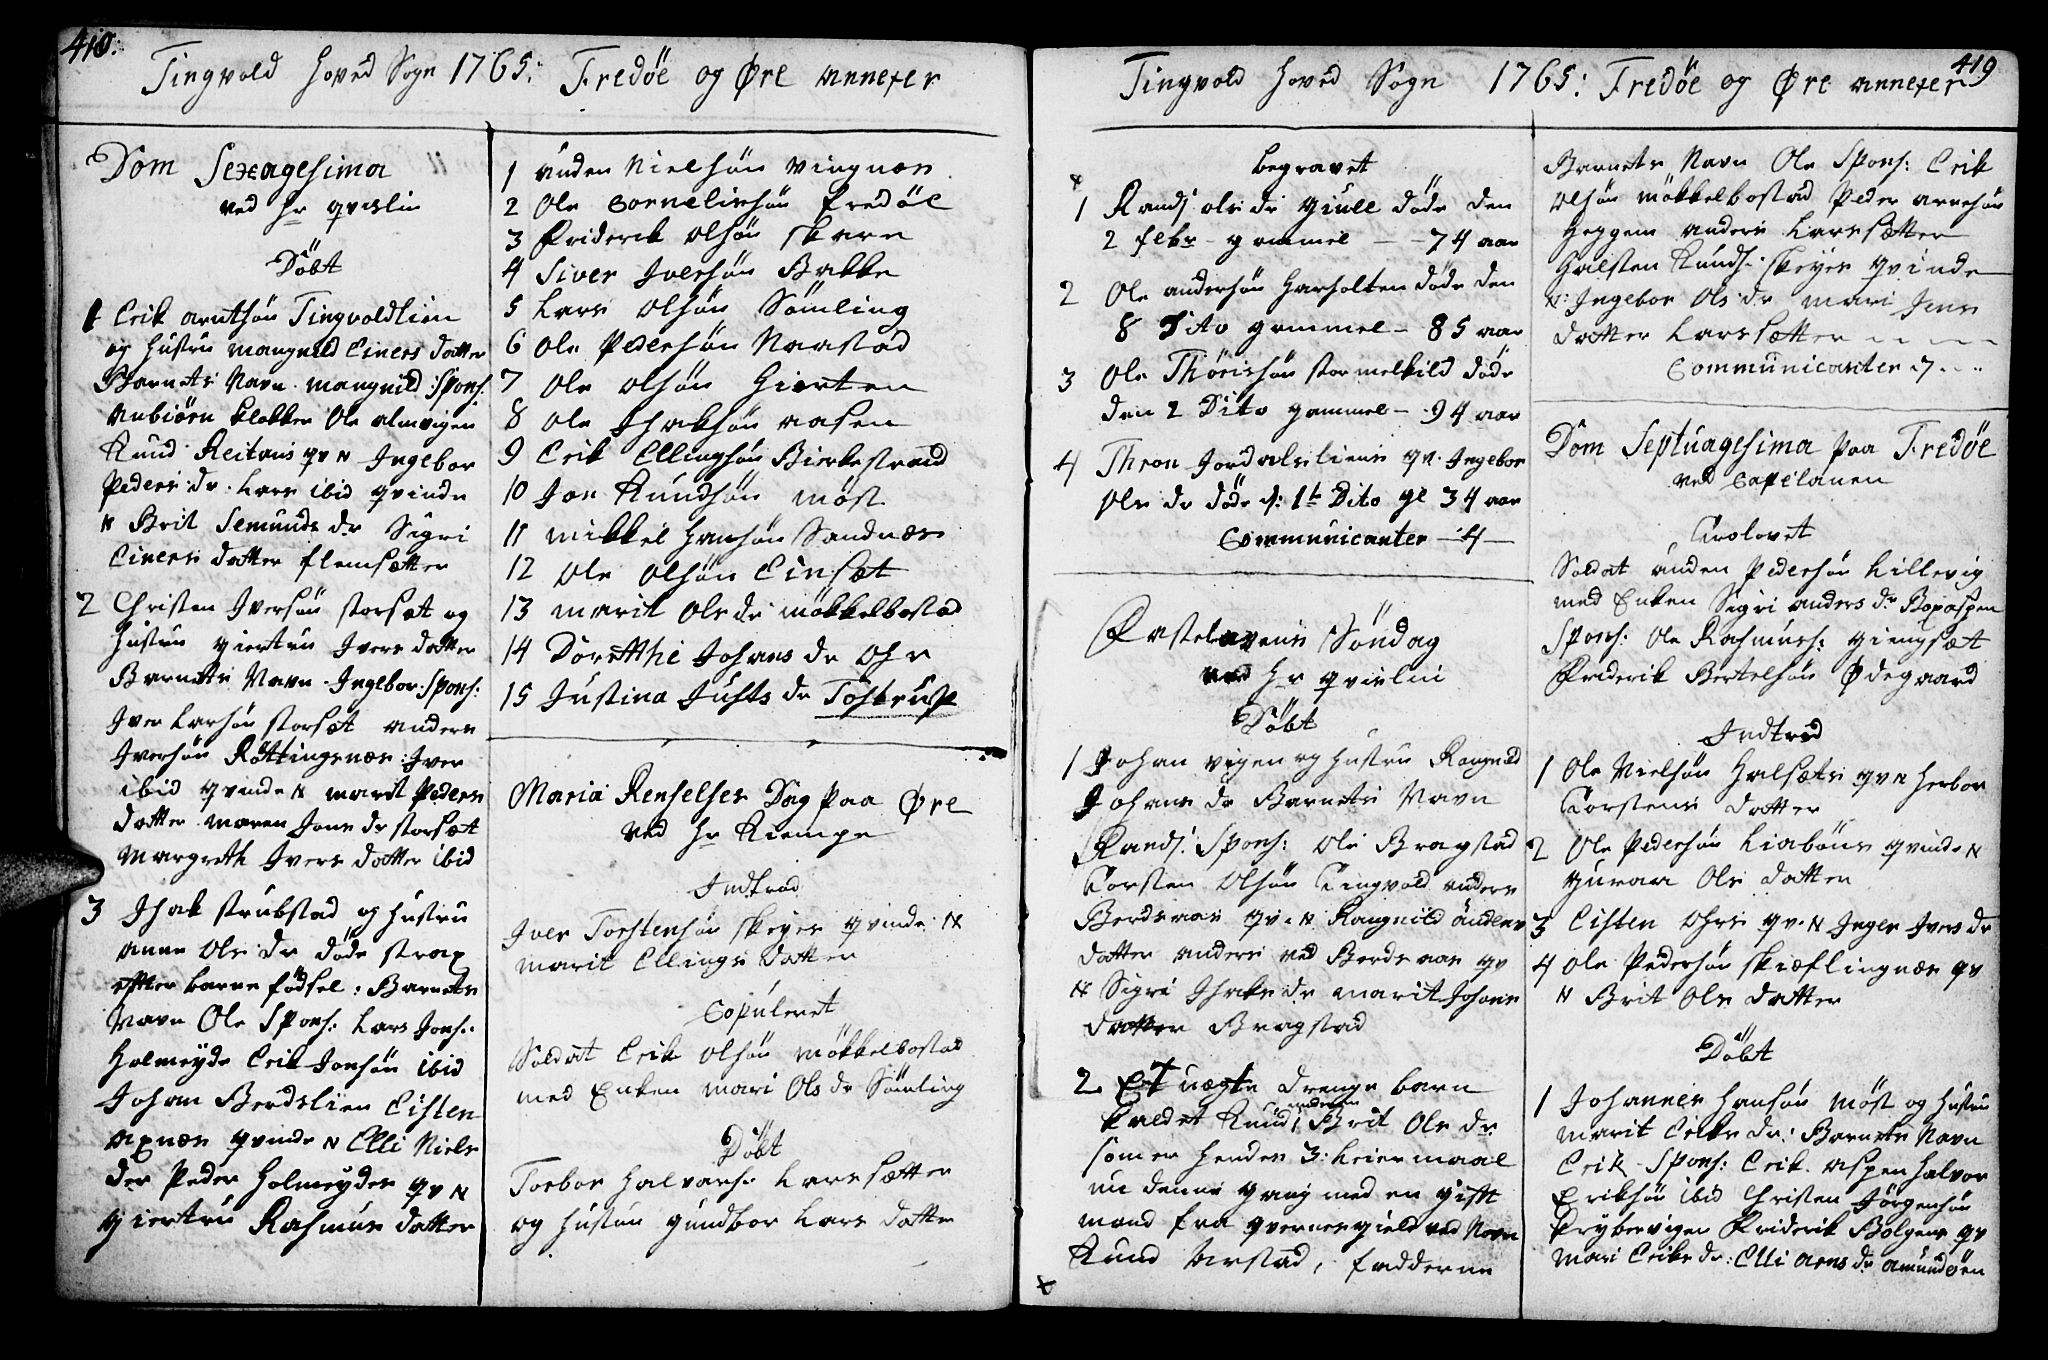 410.
Tingvold Hoved Sogn 1765: Fredöe og Øre annexer
Dom Sexagesima
ved Hr qvislin
Döbt
1 Erik arntsön Tingvoldlien
og Hustru Mangnild Einers datter
Barnets Navn mangnild Spons:
Anbiörn klokker Ole almvigen
Knud Reitans qv N Ingebor
Peders dr. Lars ibid qvinde
N Brit Semunds dr Sigri
Einers datter flemsætter
2 Christen Iversön storsæt og
Hustru giertru Ivers datter
Barnets Navn Ingebor Spons:
Iver Larsön storsæt anders
Iversön Röttingsnæs Iver
ibid qvinde N marit Peders
datter maren Jons dr storsæt
Margreth Ivers datter ibid
3 Isak strubstad og Hustru
anne Ols dr döde strax
efter barne födsel: Barnets
Navn Ole Spons: Lars Jons:
Holmeyde Erik Jonsön ibid
Johan Berdslien Eisten
axnæs qvinde N Elli Niels
der Peder Holmeydes qv N
giertru Rasmus datter
1 anders Nielsön Vingnæs
2 Ole Cornelissön Fredöe
3 Friderik olsön skare
4 Siver Iversön Bakke
5 Lars olsön Sömling
6 Ole Pedersön Naastad
7 Ole olsön Hierten
8 Ole Isaksön aasen
9 Erik Ellingsön Bierkestrand
10 Jon Knudsön möst
11 mikkel Hansön Sandnæs
12 Ole olsön Einsæt
13 marit Ols dr mökkelbostad
14 Dorethe Johans dr Ohr
15 Justina Justs dr Tostrup
Maria Renselses Dag paa Øre
ved Hr Kiempe
Indtrad
Iver Torstensön skeyes qvinde N
marit Ellings datter
Copuleret
Soldat Erik olsön mökkelbostad
med Enken mari Ols dr Sömling
Döbt
Torbor Halvars: Larssætter
og Hustru gundbor Lars datter
419
Tingvold Hoved Sogn 1765: Fredöe og Øre annexer
begravet
1 Rands ols dr giull döde den
2 febr - gammel - - 74 aar
2 Ole andersön Harsolten döde den
8 Dito gammel - 85 aar
3 Ole Thörissön stormelkild döde
den 2 Dito gammel - 94 aar
4 Thron Jordalsliens qv. Ingebor
Ols dr döde d: 1te Dito gl 34 aar
Communicanter - 4 -
Fastelavens Söndag
ved Hr qvislin
Döbt
1 Johan vigen og Hustru Rangnild
Johans dr Barnets Navn
Rands: Spons: Ole Bragstad
Torsten olsön Tingvold anders
Berdsaas qv. N Rangnild anders
datter anders ved Berdsaas qv
N Sigri Isaks dr marit Johans
datter Bragstad
2. Et uægte drenge barn
kaldet Knud, moderen Brit Ols dr
som er hendes 3: Leiermaal
nu denne gang med en gift
mand fra qvernesgield ved Navn
Knud Arstad, fadderne
Barnets Navn Ole Spons: Erik
olsön möKkelbostad Peder arnesön
Heggem anders Larssætter
Halsten Knuds: skeyes qvinde
N: Ingebor Ols dr mari Jens
datter Larssætter
Communicanter 7
Dom Septuagesima paa Fredöe
ved Capelanen
Trolovet
Soldat anders Pedersön Lillevig
med Enken Sigri anders dr Boxaspen
Spons: Ole Rasmuss: giengsæt
Friderik Bertelsön Ødegaard
Indtrad
1 Ole Nielsön Halsæts qv N Herbor
Torstens datter
2 Ole Pedersön Liaböns qvinde N
guraa Ols datter
3 Eisten Ohrs qv. N Inger Ivers dr
4 Ole Pedersön skieflingnæs qv
N Brit Ols datter
Döbt
1 Johannes Hansön möst og Hustru
marit Eriks dr: Barnets Navn
Erik - Spons: Erik aspen Halvor
Eriksön ibid Christen Jörgensön
Frydervigen Friderik Bolgens qv
Mari Eriks dr: Elli arns dr amundöen